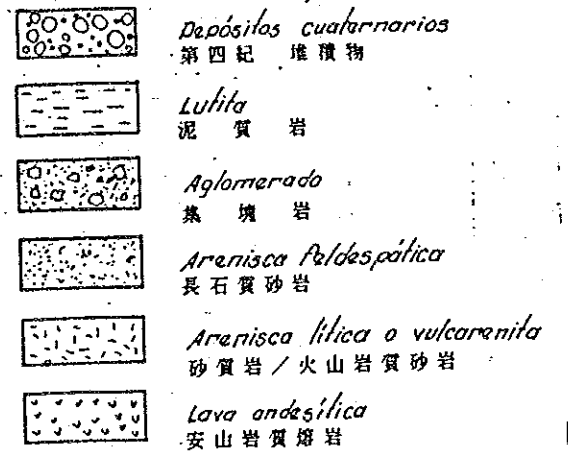 Depósitos cuaternarios
第四紀 堆積物
Lutita
泥質岩
Aglomerado
集塊岩
Arenisca feldespática
長石質砂岩
Arenisca lítica o vulcarenita
砂質岩/火山岩質砂岩
Lava andesítica
安山岩質熔岩